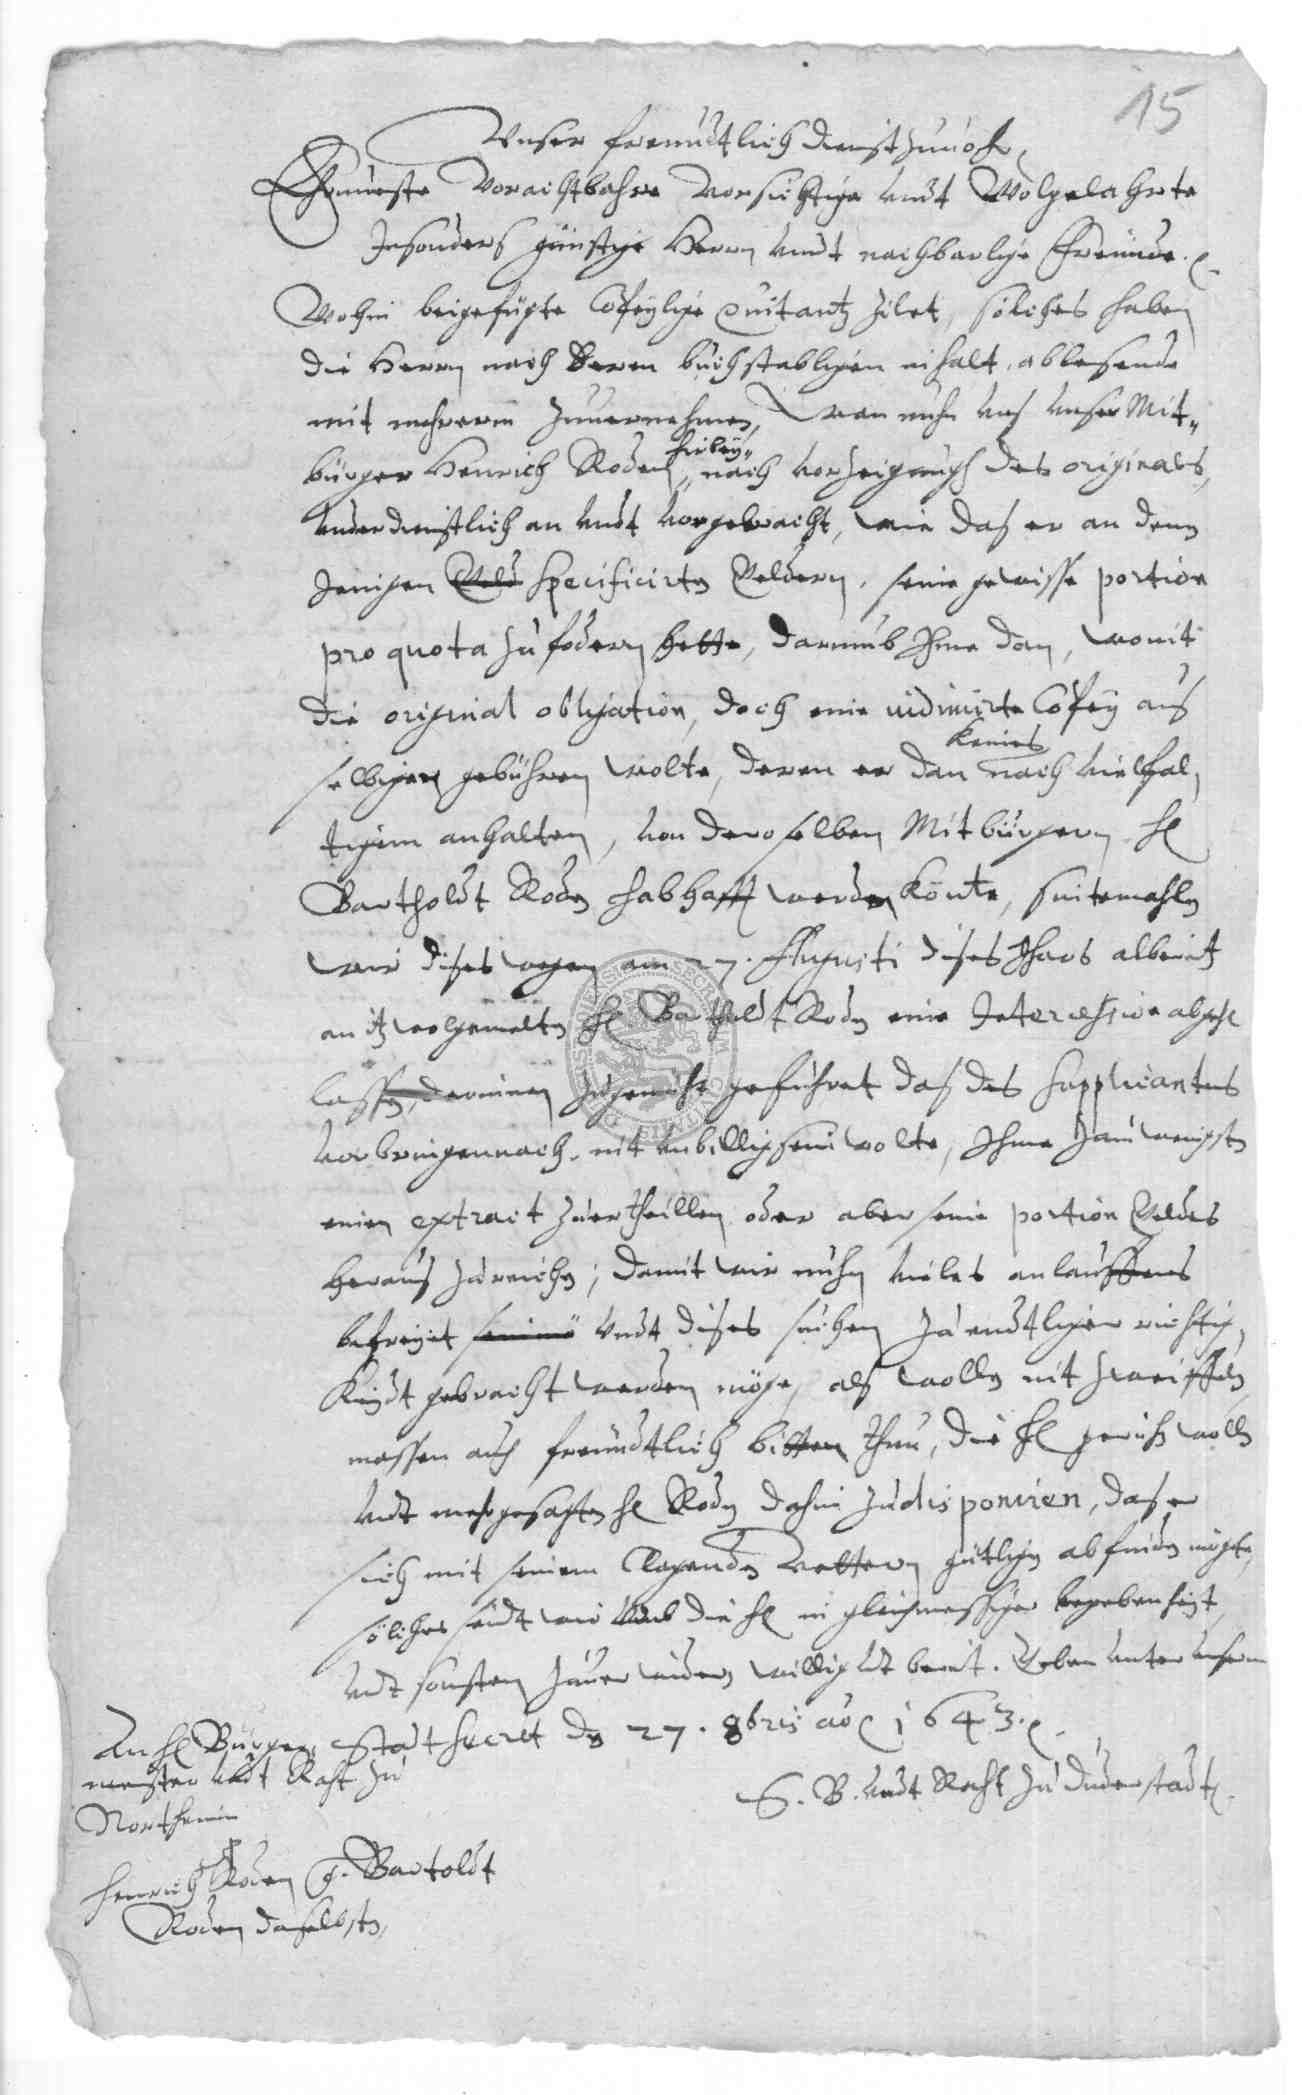 15
Unser freundtlich dienst zuuor,
Ehrnueste Vorachtbahre vorsichtige undt Wolgelahrte
Insonders günstige Herrn undt nachbarlige Freunde.
Wohin beigefügte Copeylige Quitantz zilet, solches haben
die Herrn nach deren buchstabligen inhalt ablesende
mit mehrerem zuuernehmen, Wan nuhn uns unser Mit-
bürger Henrich Roden, hirbey nach vorzeigung des originals,
underdienstlich an undt vorgebracht, wie das er an denn
Jenigen Veld specificirten Veldern, seine gewisse portion
pro quota zu fodern hette, darumb Ihme dan, womit
die original obligation, doch eine vidimirte Copey aus
selbigen gebühren wolte, deren er dan keines nach vielfal
tigem anhalten, von deroselben Mitbürgern H
Bartholdt Roden habhafft werden könte, sintemahln
wir dises wegen am 27. Augusti dises Jhars albereit
an itz wolgemelten H Bartholdt Roden eine Intercession abgeh
lassen, darinnen zugemühte geführet das des supplicanten
vorbringennach, nit unbillig sein wolte, Ihme zum wenigsten
einen extract zuertheillen oder aber seine portion Veldes
heraus zureichen; damit wir nuhn vieles anlauffens
befreyet undt dises suchen zu endtliger richtig,
Keydt gebracht werden möge, als wollen nit zweiffeln,
massen auch freundtlich bitten thun, die H geruhn wolln
undt mehrgesagten H Roden dahin zu disponiren, das er
sich mit seinem Clagenden Vettern gütligen abfinden mögte,
solches seindt wir umb die H in gleichmessiger begebenheyt
undt sonsten zuuerwidern willig undt bereit. Geben unter unserm
Stadt secret den 27. 8bris ao 1643.
S. B. undt Raht zu Duderstadt
An H Bürger
meister undt Raht zu
Northeim
Henrich Roden C. Bartoldt
Roden daselbsten,